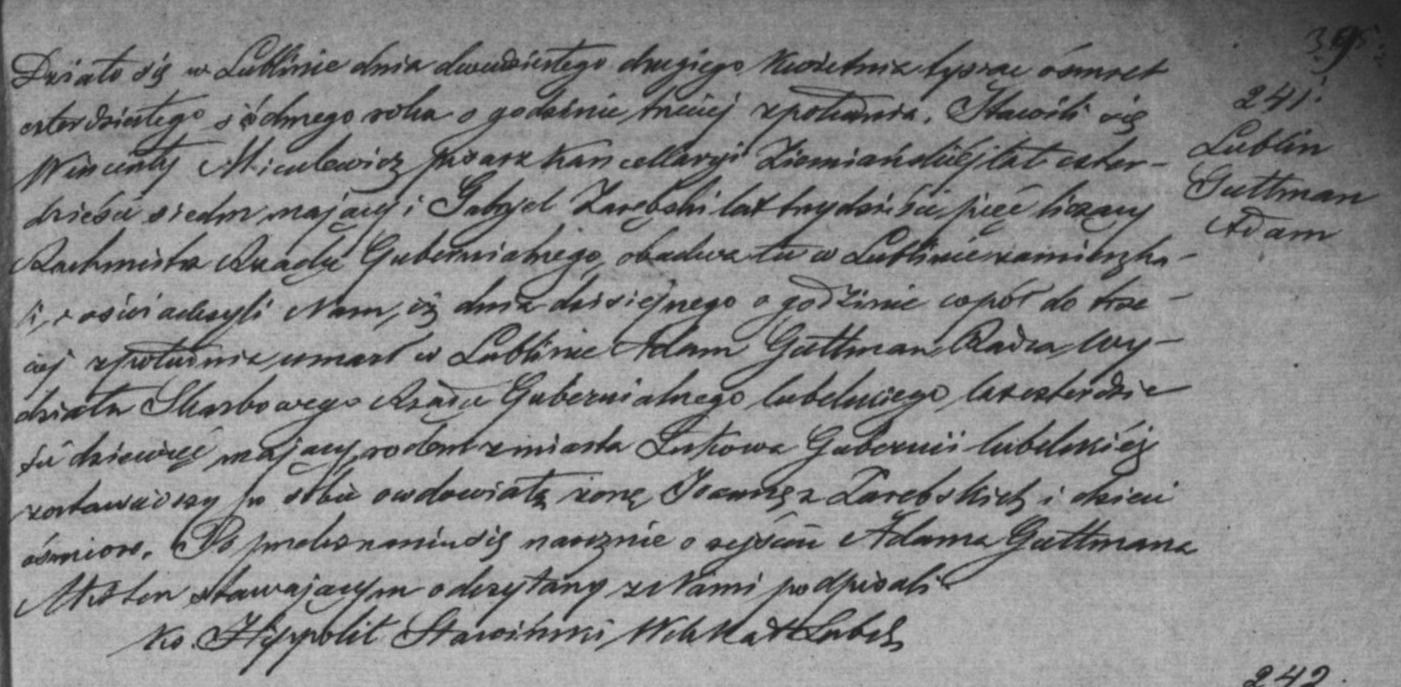 Działo się w Lublinie dnia dwudziestego drugiego Kwietnia tysiąc ośmset
czterdziestego siódmego roku o godzinie trzeciej z południa. Stawili się
Wincenty Miculewicz pisarz Kancellaryi Ziemiańskiej lat czter-
dzieści siedm mający i Gabryel Zarębski lat trzydzieści pięć liczący
Rachmistrz Rządu Gubernialnego, obadwa tu w Lublinie zamieszka-
li, i oświadczyli Nam, iż dnia dzisiejszego o godzinie wpół do trze-
ciej z południa umarł w Lublinie Adam Guttman, Radca Wy-
działu Skarbowego Rządu Gubernialnego lubelskiego, lat czterdzie
ści dziewięć mający, rodem z miasta Łukowa Gubernii lubelskiéj
zostawiwszy po sobie owdowiałą żonę Joannę z Zarebskich i dzieci
ośmioro. Po przekonaniu się naocznie o zejściu Adama Guttmana
Akt ten stawającym odczytany z Nami podpisali
Ks. Hippolit Stawiński Wik Kat Lubel
241.
Lublin
Guttman
Adam
242.